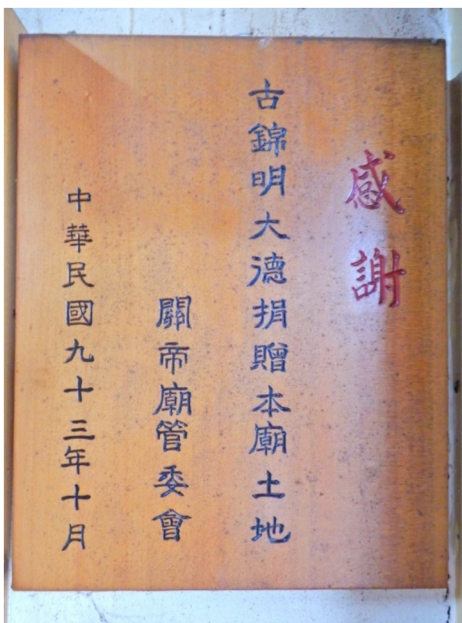 感謝
古錦明大德捐贈本廟土地
關帝廟管委會
中華民國九十三年十月